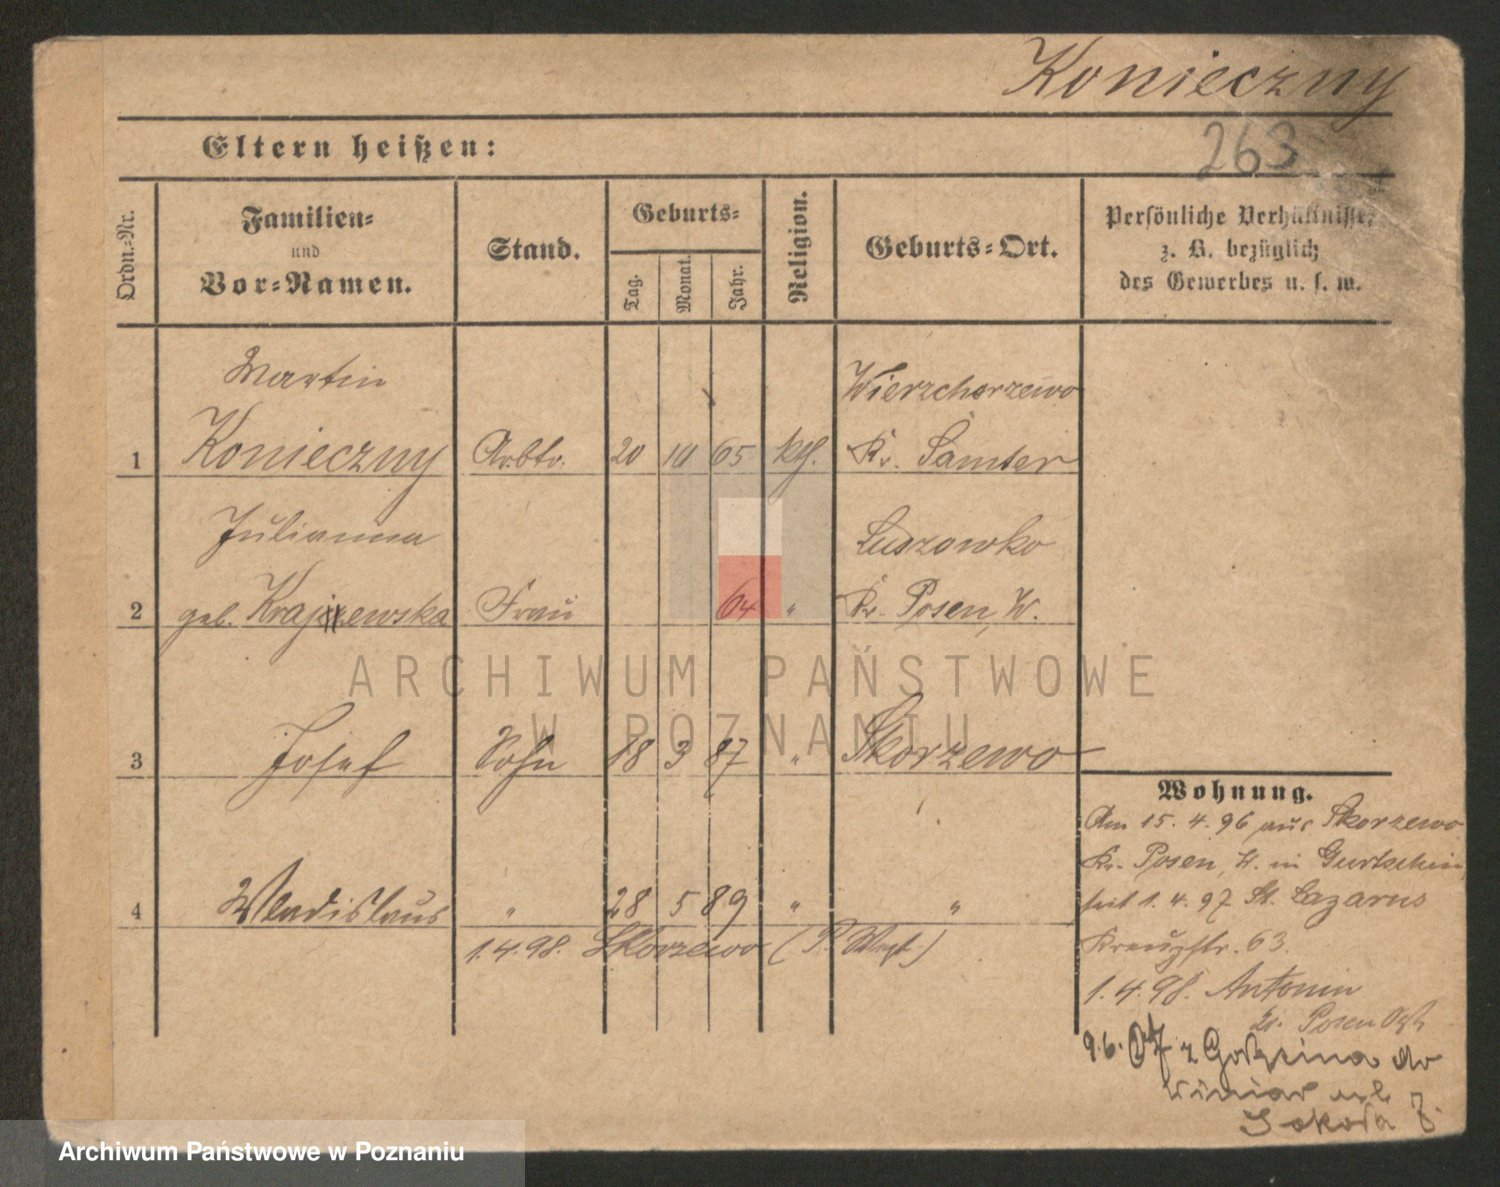 Konieczny
263
Eltern heißen:
Ordn.-Nr.
Familien-
und
Vor-Namen.
Stand.
Geburts-
Tag.
Monat.
Jahr.
Religion.
Geburts-Ort.
Persönliche Verhältnisse,
z. B. bezüglich
des Gewerbes u. s. w.
Martin Wierzchorzewo
1 Konieczny Arbtr. 20 10 65 kth. Kr. Samter
Julianna Lussowko
2 geb. Krajewska Frau 64 " Kr. Posen, W.
3 Josef Sohn 18 3 87 " Skorzewo
4 Wladislaus " 28 5 89 " "
1.4.98. Skorzewo (P. West)
Wohnung.
Am 15. 4. 96 aus Skorzewo
Kr. Posen, W. in Gurtschin,
seit 1. 4. 97 St. Lazarus
Kreuzstr. 63.
1. 4. 98. Antonin
Kr. Posen Ost
9.6. z do
Winiar ul.
ARCHIWUM PAŃSTWOWE
W POZNANIU
Archiwum Państwowe w Poznaniu